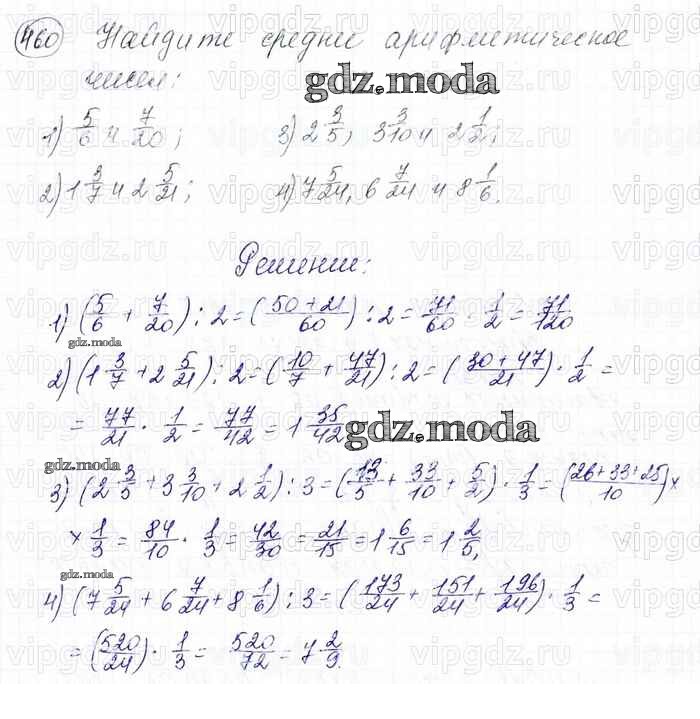 460 Найдите среднее арифметическое
чисел:
gdz.moda
1) 5/6 и 7/20; 3) 2 3/5, 3 3/10 и 2 1/2;
2) 1 3/7 и 2 5/21; 4) 7 5/24, 6 7/24 и 8 1/6.
Решение:
1) (5/6 + 7/20) : 2 = (50+21/60) : 2 = 71/60 · 1/2 = 71/120
gdz.moda
2) (1 3/7 + 2 5/21) : 2 = (10/7 + 47/21) : 2 = (30+47/21) · 1/2 =
= 77/21 · 1/2 = 77/42 = 1 35/42
gdz.moda
gdz.moda
3) (2 3/5 + 3 3/10 + 2 1/2) : 3 = (13/5 + 33/10 + 5/2) · 1/3 = (26+33+25/10) ×
× 1/3 = 84/10 · 1/3 = 42/30 = 21/15 = 1 6/15 = 1 2/5,
gdz.moda
4) (7 5/24 + 6 7/24 + 8 1/6) : 3 = (173/24 + 151/24 + 196/24) · 1/3 =
= (520/24) · 1/3 = 520/72 = 7 2/9.
vipgdz.ru